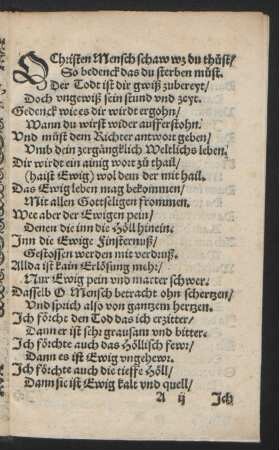 O Christen Mensch schaw wz du thůst/
So bedenck das du sterben můst.
Der Todt ist dir gwiß zubereyt/
Doch vngewiß sein stund vnd zeyt.
Gedenck wie es dir wirdt ergohn/
Wann du wirst wider aufferstohn.
Vnd můst dem Richter antwort geben/
Vmb dein zergängklich Weltlichs leben.
Dir wirdt ein ainig wort zů thail/
(haist Ewig) wol dem der mit hail.
Das Ewig leben mag bekommen/
Mit allen Gottseligen frommen.
Wee aber der Ewigen pein/
Denen die inn die Höll hinein.
Inn die Ewige Finsternuß/
Gestossen werden mit verdruß.
Allda ist kain Erlösung mehr/
Nur Ewig pein vnd marter schwer.
Dasselb O Mensch betracht ohn schertzen/
Vnd sprich also von gantzem hertzen.
Ich förcht den Tod das ich erzitter/
Dann er ist sehr grausam vnd bitter.
Ich förchte auch das Höllisch fewr/
Dann es ist Ewig vngehewr.
Ich förchte auch die tieffe Höll/
Dann sie ist Ewig kalt vnd quell/
A ij Ich